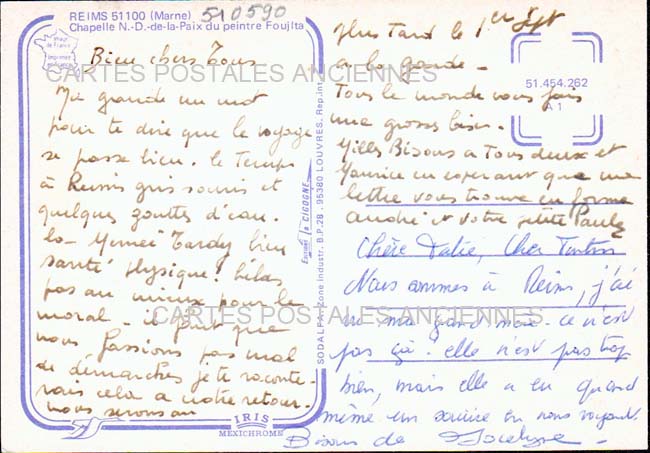 REIMS 51100 (Marne)
Chapelle N.-D.-de-la-Paix du peintre Foujita
510590
Bien chers Tous
Ma grande un mot
pour te dire que le voyage
se passe bien. le Temps
à Reims gris souris et
quelques gouttes d'eau.
la Tardy bien
santé physique! hélas
pas au mieux pour le
moral - il faut que
nous fassions pas mal
de démarches je te raconte-
rais cela a notre retour -
nous serons au
plus Tard le 1er Sept
a la garde -
Tous le monde vous fais
une grosse bise.
Milles Bisous a Tous deux et
Maurice en esperant que ma
lettre vous trouve en forme
André et votre petite Paule
Chère Tatie, Cher Tonton
Nous sommes à Reims, j'ai
vu ma grand mère. ce n'est
pas ça! elle n'est pas trop
bien, mais elle a eu quand
même un sourire en nous voyant.
Bisous de Jocelyne -
51.454.262
A 1
Editions la CIGOGNE
SODALFA, Zone Industr. B.P. 28 - 95380 LOUVRES. Rep. int.
IRIS
MEXICHROME
CARTES POSTALES ANCIENNES
CARTES POSTALES ANCIENNES